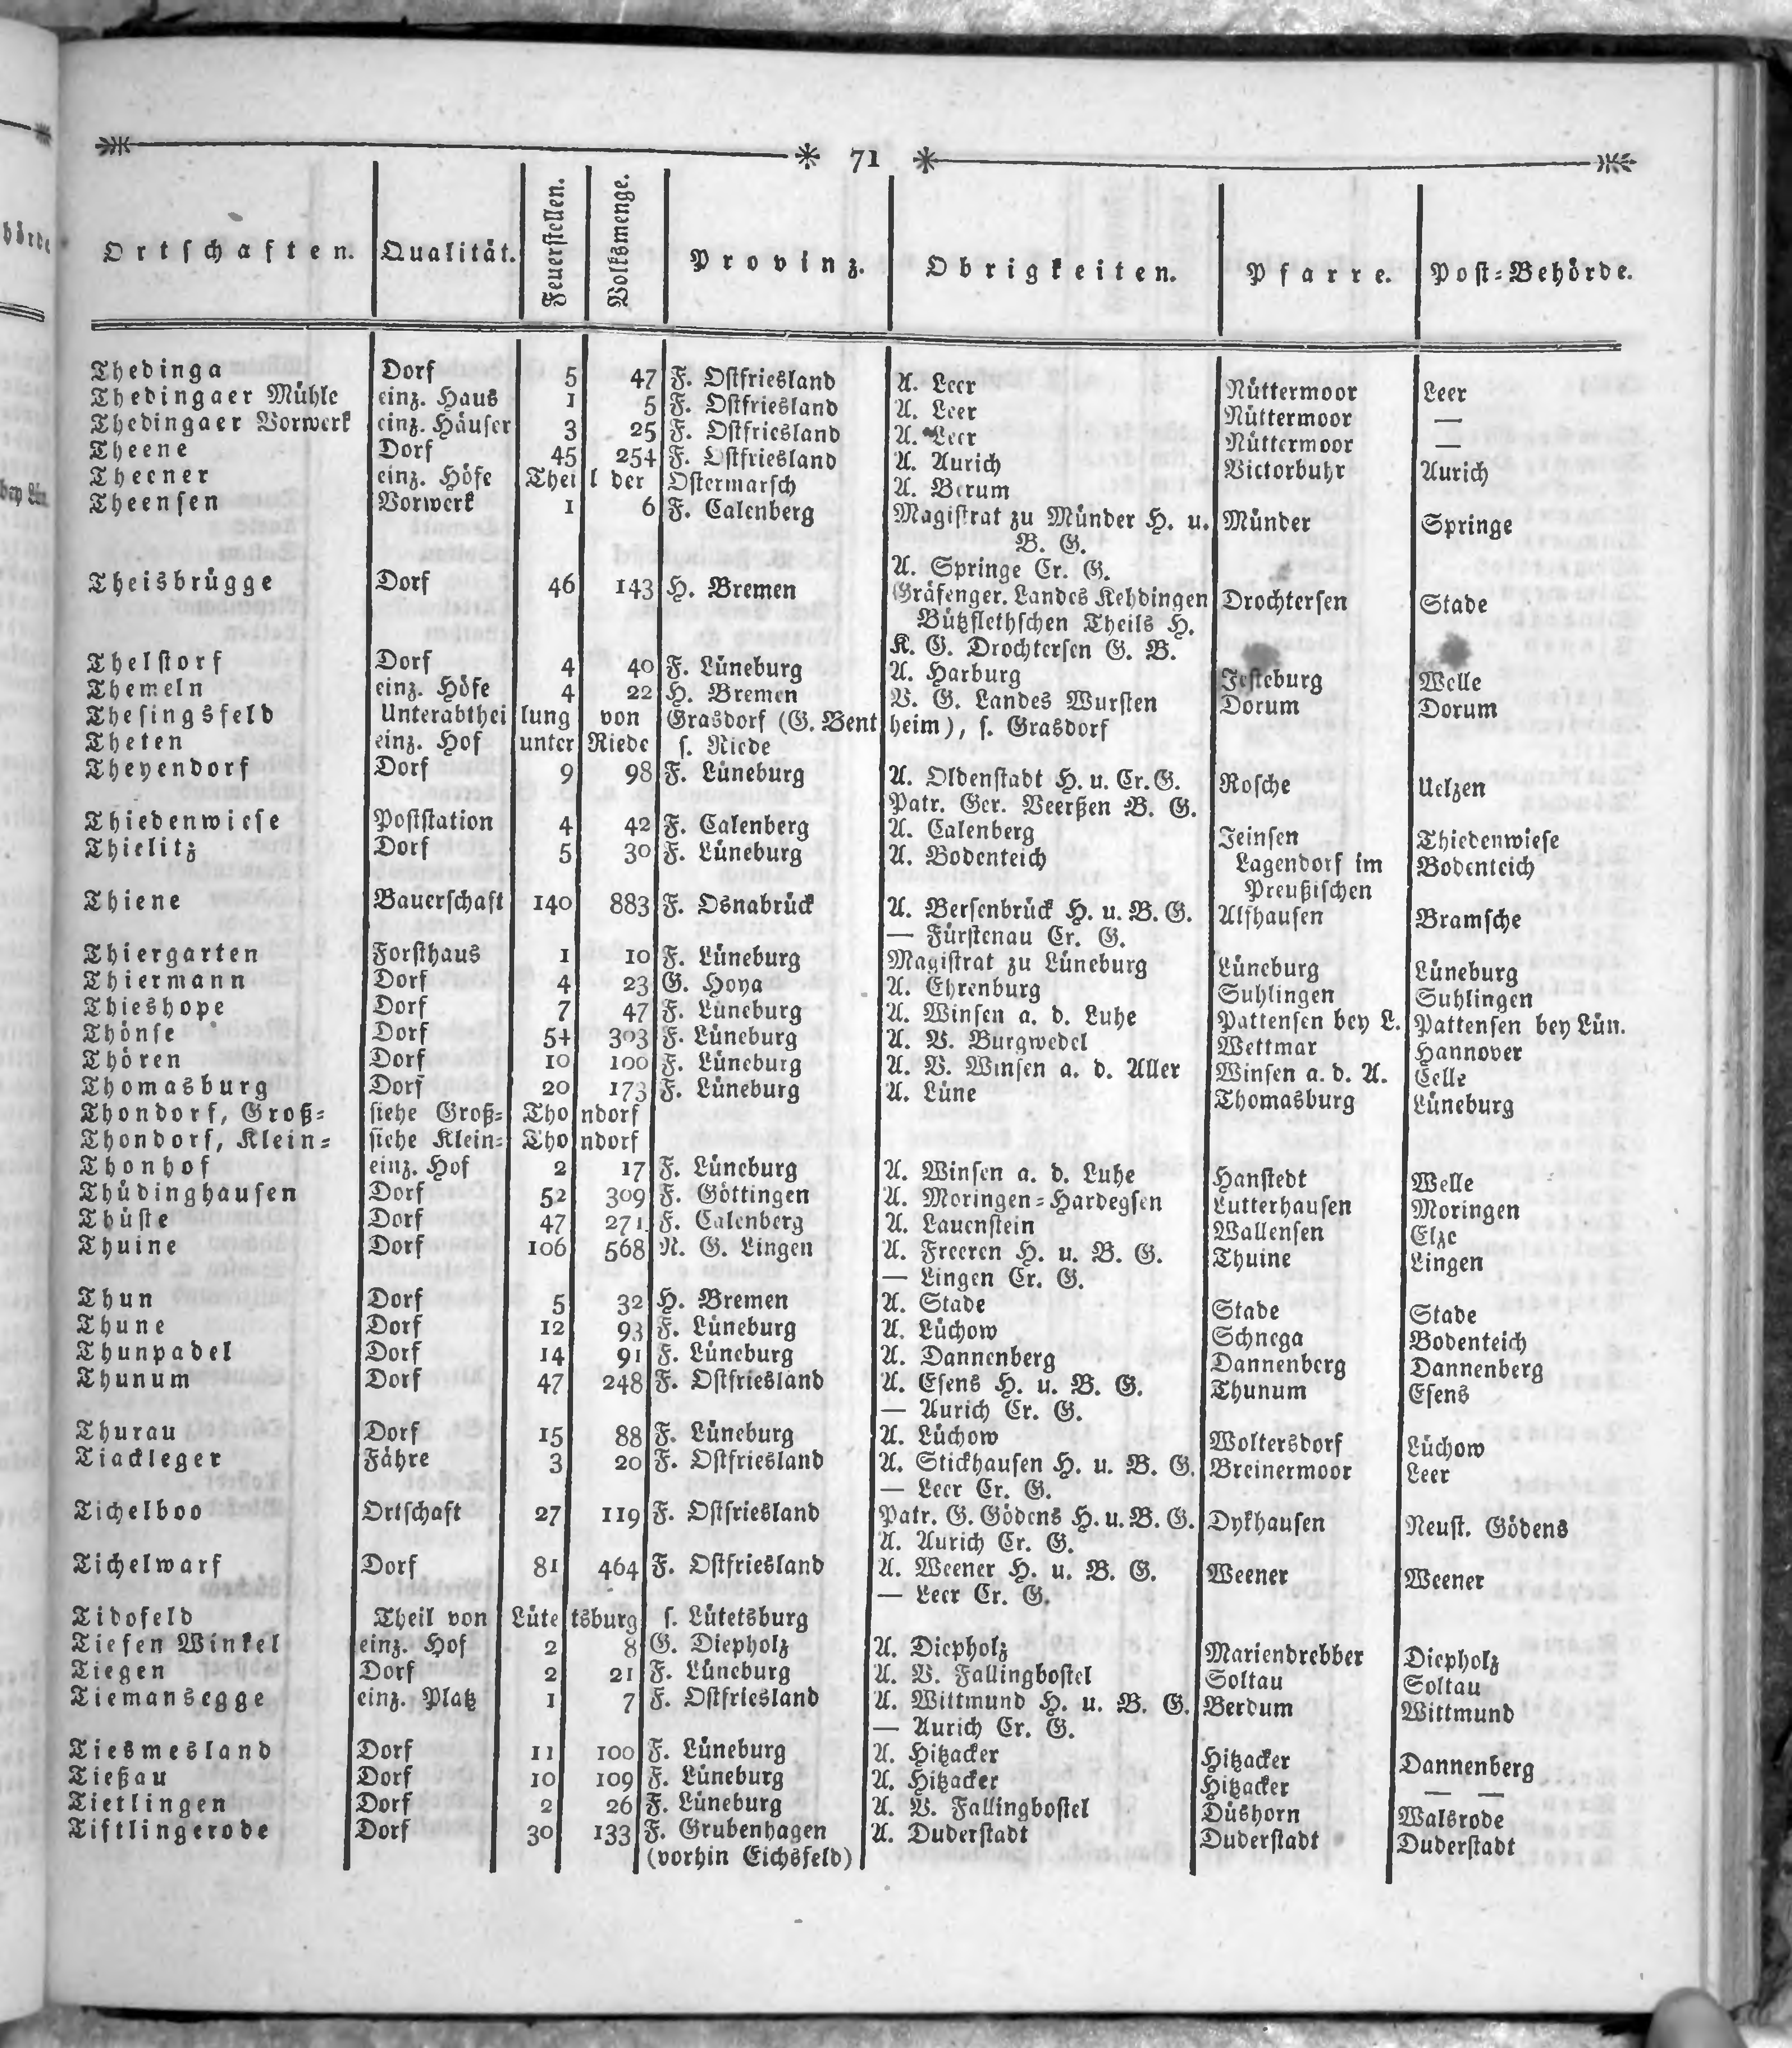 71
Ortschaften. Qualität. Feuerstellen. Volksmenge. Provinz. Obrigkeiten. Pfarre. Post-Behörde.
Thedinga Dorf 5 47 F. Ostfriesland A. Leer Nüttermoor Leer
Thedingaer Mühle einz. Haus 1 5 F. Ostfriesland A. Leer Nüttermoor —
Thedingaer Vorwerk einz. Häuser 3 25 F. Ostfriesland A. Leer Nüttermoor —
Theene Dorf 45 254 F. Ostfriesland A. Aurich Victorbuhr Aurich
Theener einz. Höfe Theil der Ostermarsch A. Berum
Theensen Vorwerk 1 6 F. Calenberg Magistrat zu Münder H. u. Münder Springe
B. G.
A. Springe Cr. G.
Theisbrügge Dorf 46 143 H. Bremen Gräfenger. Landes Kehdingen Drochtersen Stade
Bützflethschen Theils H.
K. G. Drochtersen G. B.
Thelstorf Dorf 4 40 F. Lüneburg A. Harburg Jesteburg Welle
Themeln einz. Höfe 4 22 H. Bremen V. G. Landes Wursten Dorum Dorum
Thesingsfeld Unterabtheilung von Grasdorf (G. Bentheim), s. Grasdorf
Theten einz. Hof unter Riede s. Riede
Theyendorf Dorf 9 98 F. Lüneburg A. Oldenstadt H. u. Cr. G. Rosche Uelzen
Patr. Ger. Veerßen B. G.
Thiedenwiese Poststation 4 42 F. Calenberg A. Calenberg Jeinsen Thiedenwiese
Thielitz Dorf 5 30 F. Lüneburg A. Bodenteich Lagendorf im Bodenteich
Preußischen
Thiene Bauerschaft 140 883 F. Osnabrück A. Bersenbrück H. u. B. G. Alfhausen Bramsche
— Fürstenau Cr. G.
Thiergarten Forsthaus 1 10 F. Lüneburg Magistrat zu Lüneburg Lüneburg Lüneburg
Thiermann Dorf 4 23 G. Hoya A. Ehrenburg Suhlingen Suhlingen
Thieshope Dorf 7 47 F. Lüneburg A. Winsen a. d. Luhe Pattensen bey L. Pattensen bey Lün.
Thönse Dorf 54 303 F. Lüneburg A. V. Burgwedel Wettmar Hannover
Thören Dorf 10 100 F. Lüneburg A. V. Winsen a. d. Aller Winsen a. d. A. Celle
Thomasburg Dorf 20 173 F. Lüneburg A. Lüne Thomasburg Lüneburg
Thondorf, Groß- siehe Groß-Thondorf
Thondorf, Klein- siehe Klein-Thondorf
Thonhof einz. Hof 2 17 F. Lüneburg A. Winsen a. d. Luhe Hanstedt Welle
Thüdinghausen Dorf 52 309 F. Göttingen A. Moringen-Hardegsen Lutterhausen Moringen
Thüste Dorf 47 271 F. Calenberg A. Lauenstein Wallensen Elze
Thuine Dorf 106 568 N. G. Lingen A. Freeren H. u. B. G. Thuine Lingen
— Lingen Cr. G.
Thun Dorf 5 32 H. Bremen A. Stade Stade Stade
Thune Dorf 12 93 F. Lüneburg A. Lüchow Schnega Bodenteich
Thunpadel Dorf 14 91 F. Lüneburg A. Dannenberg Dannenberg Dannenberg
Thunum Dorf 47 248 F. Ostfriesland A. Esens H. u. B. G. Thunum Esens
— Aurich Cr. G.
Thurau Dorf 15 88 F. Lüneburg A. Lüchow Woltersdorf Lüchow
Tiackleger Fähre 3 20 F. Ostfriesland A. Stickhausen H. u. B. G. Breinermoor Leer
— Leer Cr. G.
Tichelboo Ortschaft 27 119 F. Ostfriesland Patr. G. Gödens H. u. B. G. Dykhausen Neust. Gödens
A. Aurich Cr. G.
Tichelwarf Dorf 81 464 F. Ostfriesland A. Weener H. u. B. G. Weener Weener
— Leer Cr. G.
Tidofeld Theil von Lütetsburg s. Lütetsburg
Tiefen Winkel einz. Hof 2 8 G. Diepholz A. Diepholz Mariendrebber Diepholz
Tiegen Dorf 2 21 F. Lüneburg A. V. Fallingbostel Soltau Soltau
Tiemansegge einz. Platz 1 7 F. Ostfriesland A. Wittmund H. u. B. G. Berdum Wittmund
— Aurich Cr. G.
Tiesmesland Dorf 11 100 F. Lüneburg A. Hitzacker Hitzacker Dannenberg
Tießau Dorf 10 109 F. Lüneburg A. Hitzacker Hitzacker — —
Tietlingen Dorf 2 26 F. Lüneburg A. V. Fallingbostel Düshorn Walsrode
Tiftlingerode Dorf 30 133 F. Grubenhagen A. Duderstadt Duderstadt Duderstadt
(vorhin Eichsfeld)